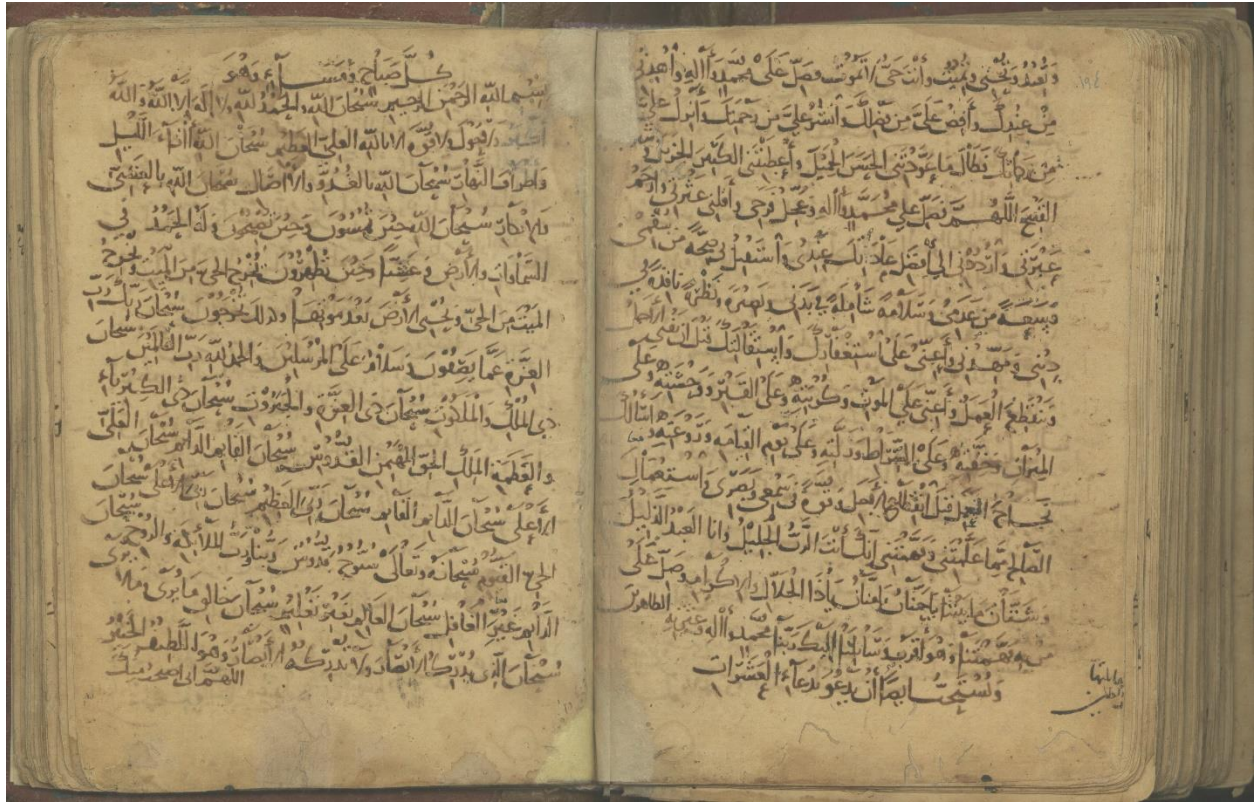 ١٩٤
وتحيي وتميت وأنت حي لا تموت وصل على محمد وآله وأهدني
من عندك وأفض علي من فضلك وانشر علي من رحمتك وأنزل علي
من بركاتك فطال ما عودتني الحسن الجميل وأعطيتني الكثير الجزيل
القبيح اللهم فصل على محمد وآله وعجل فرجي وأقلني عثرتي وارحم
عبرتي وارددني إلى أفضل عادتك عندي واستقبل بي صحة من سقمي
وسعة من عدمي وسلامة شاملة في بدني وبصيرة ونظرة نافذة في
ديني ومهدني وأعني على استغفارك واستقالتك قبل أن يفنى الأجل
وينقطع العمل وأعني على الموت وكربته وعلى القبر ووحشته وعلى
الميزان وخفته وعلى الصراط وزلته وعلى يوم القيامة وروعته وأسألك
نجاح العمل قبل انقطاع الأجل وقوة في سمعي وبصري واستعمال
الصالح مما علمتني وفهمتني إنك أنت الرب الجليل وأنا العبد الذليل
وشتان ما بيننا يا حنان يا منان يا ذا الجلال والإكرام وصل على
من به فهمتنا وهو أقرب وسائلنا إليك ربنا محمد وآله وعترته الطاهرين
ويستحب أيضا أن يدعو بدعاء العشرات
كل صباح ومساء وهو
بسم الله الرحمن الرحيم سبحان الله والحمد لله ولا إله إلا الله والله
أكبر ولا حول ولا قوة إلا بالله العلي العظيم سبحان الله آناء الليل
وأطراف النهار سبحان الله بالغدو والآصال سبحان الله بالعشي
والإبكار سبحان الله حين تمسون وحين تصبحون وله الحمد في
السماوات والأرض وعشيا وحين تظهرون يخرج الحي من الميت ويخرج
الميت من الحي ويحيي الأرض بعد موتها وكذلك تخرجون سبحان ربك رب
العزة عما يصفون وسلام على المرسلين والحمد لله رب العالمين سبحان
ذي الملك والملكوت سبحان ذي العزة والجبروت سبحان ذي الكبرياء
والعظمة الملك الحق المهيمن القدوس سبحان القائم الدائم سبحان
الأعلى سبحان الدائم القائم سبحان ربي العظيم سبحان ربي الأعلى سبحان
الحي القيوم سبحانه وتعالى سبوح قدوس ربنا ورب الملائكة والروح سبحان
الدائم غير الغافل سبحان العالم بغير تعليم سبحان خالق ما يرى وما لا يرى
سبحان الذي يدرك الأبصار ولا تدركه الأبصار وهو اللطيف الخبير
اللهم إني أصبحت منك